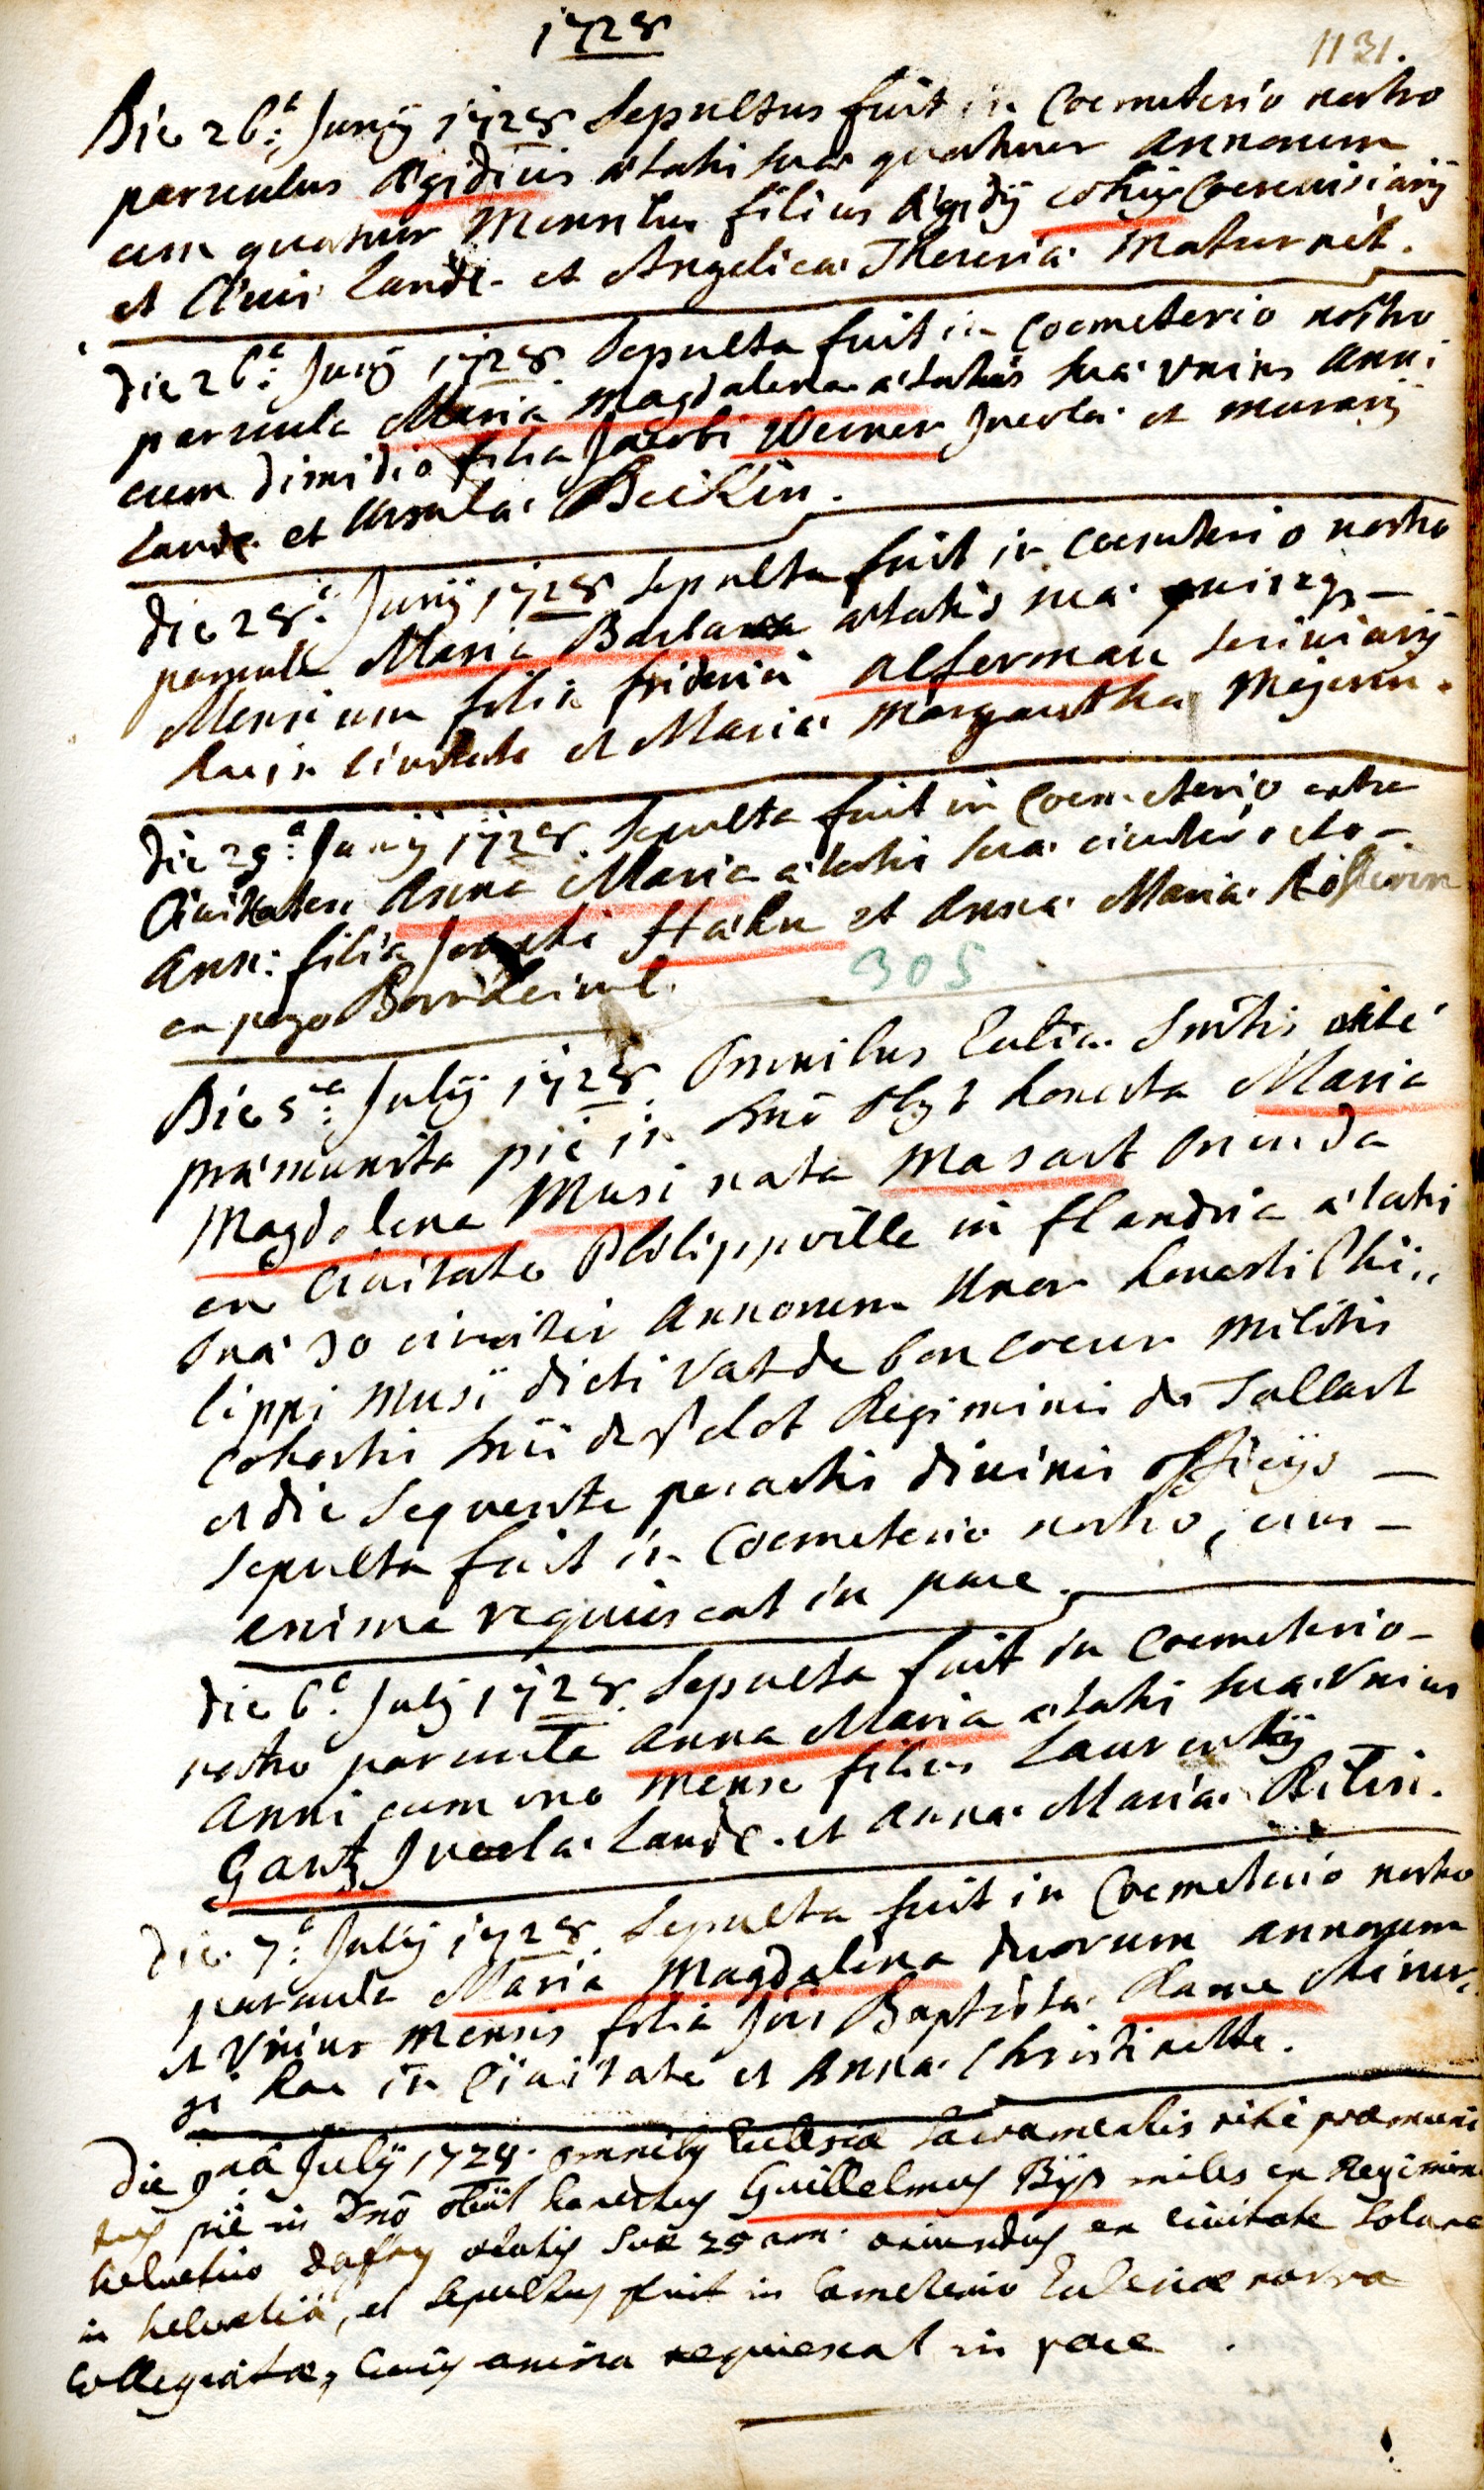 1728
1131.
Die 26ᵗ: Junÿ 1728 Sepultus fuit in Coemeterio nostro
parvulus Ægidius ætatis suæ quatuor annorum
cum quatuor Mensibus filius Ægidÿ Cerevisiarÿ
et Civis Land: et Angelicæ Theresiæ Maturnèt.
Die 26ᵗ: Junÿ 1728 Sepulta fuit in Coemeterio nostro
parvula Maria Magdalena ætatis suæ unius anni
cum dimidio filia Jacobi Werner Incolæ et murarÿ
Land: et Ursulæ Beckin.
Die 28ᵗ: Junÿ 1728 Sepulta fuit in Coemeterio nostro
parvula Maria Barbara ætatis suæ quinq; –
Mensium filia friderici Alferman Scriniarÿ
hac in Civitate et Mariæ Margaretha Mejerin.
Die 29ᵃ: Junÿ 1728. Sepulta fuit in Coemeterio extra
Civitatem Anna Maria ætatis suæ circiter octo –
Ann: filia Josephi Hahn et Annæ Mariæ
ex pago Bornheim
305
Die 5ᵗᵃ: Julÿ 1728. Omnibus Ecclia. Smtis ritè
præmunita piè in Dnō Obyt honesta Maria
Magdalena Musi nata Masart Oriunda
ex Civitate Philippville in flandria ætatis
suæ 30 circiter annorum Uxor honesti Phi„
lippi Musÿ dicti Vat de bon coeur Militis
Cohortis Dnii de Regiminis de Tallart
et die sequente peractis divinis officÿs –
Sepulta fuit in Coemeterio nostro, cuius –
anima requiescat in pace.
Die 6ᵗ: Julÿ 1728. Sepulta fuit in Coemeterio –
nostro parvula Anna Maria ætatis suæ Unius
Anni cum uno Mense filia Laurentÿ –
Gantz Incolæ Land: et Annæ Mariæ
Die 7ᵗ: Julÿ 1728. Sepulta fuit in Coemeterio nostro
parvula Maria Magdalena duorum annorum
et Unius Mensis filia Jois Baptistæ Rame
hac in Civitate et Annæ Christinette.
Die 9nâ Julÿ 1728. omnibq Ecclesiæ Sacramentis ritè præmuni
tus piè in Dnō obiit honestus Guillelmus Bÿs miles ex Regimine
helvetico Daffry ætatis suæ 25 ann: oriundus ex civitate Solure
in helvetiâ, et Sepultus fuit in Cœmeterio Ecclesiæ nostræ
Collegiatæ, Cuius anima requiescat in pace .